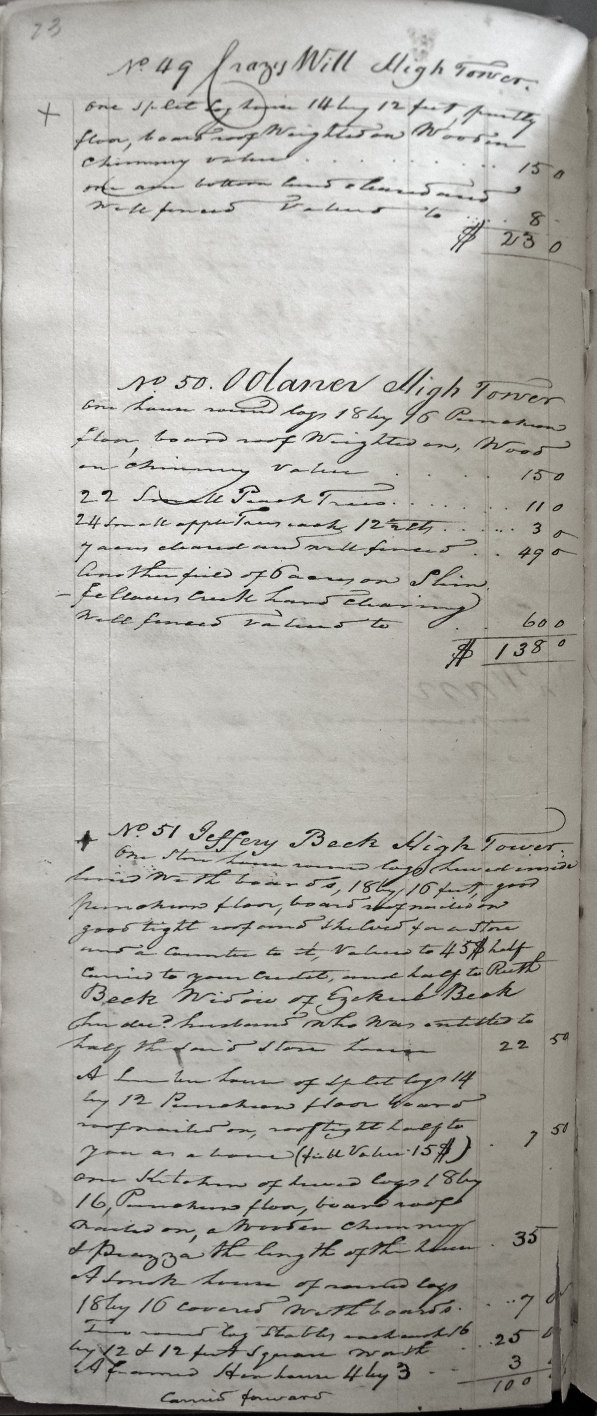 73
No 49 Crazy Will High Tower.
+ One Split log house 14 by 12 feet, puntly
floor, board roof Weighted on Wooden
Chimney value . . . . 15 0
one acre bottom land cleared and
Well fenced Valued to . . 8 -
$ 23 0
No 50. High Tower
One house round logs 18 by 16 Puncheon
floor, board roof Weighted on, Wood
en Chimney value . . . 15 0
22 Small Peach Trees . . . 11 0
24 Small apple Trees each 12½ cts . . . . 3 0
7 acres cleared and well fenced . . 49 0
Another field of 6 acres on
fellows Creek land clearing
Well fenced valued to . 60 0
$ 138 0
+ No 51 Jeffery Beck High Tower.
One Store house round logs hewed inside
lined With boards, 18 by 16 feet, good
puncheon floor, board roof nailed on
good tight roof and shelved for a Store
and a Counter to it, Valued to 45$ half
Carried to your Credit, and half to Ruth
Beck Widow of Ezekiel Beck
her decd husband Who Was entitled to
half the said Store house 22 50
A house of Split logs 14
by 12 Puncheon floor board
roof nailed on, roof tight half to
you as above (full Value 15$) . 7 50
one Kitchen of hewed logs 18 by
16, Puncheon floor, board roof
nailed on, a Wooden Chimney
& Piazza the length of the house . 35
A Smoke house of round logs
18 by 16 covered With boards . . . 7 0
Two round log Stables each 16
by 12 & 12 feet Square Worth . . 25 0
A framed Hen house 4 by 3 . . . 3
Carried forward 100